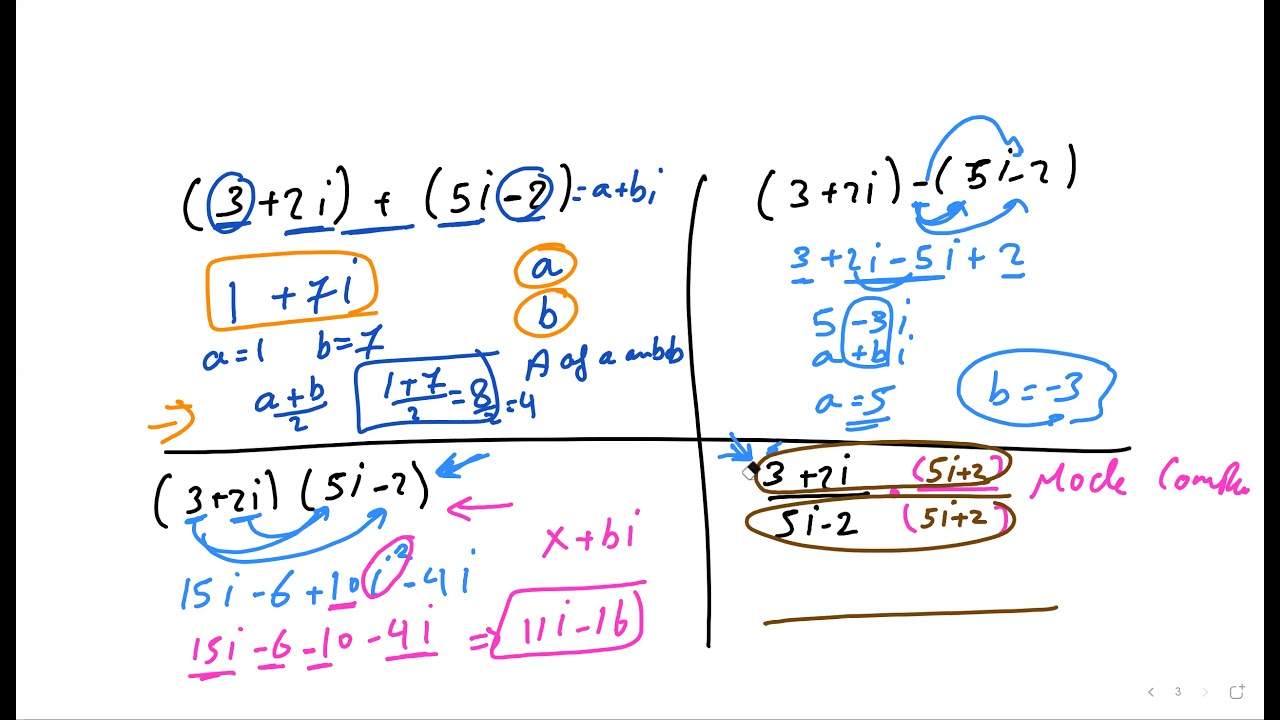 (3+2i) + (5i-2) = a+bi
1 + 7i
a
b
a=1 b=7
A of a and b
a+b/2
1+7/2 = 8/2 = 4
(3+2i) - (5i-2)
3 + 2i - 5i + 2
5 - 3i
a + bi
a = 5
b = -3
(3+2i) (5i-2)
15i - 6 + 10i² - 4i
15i - 6 - 10 - 4i => 11i - 16
x + bi
3+2i (5i+2)
5i-2 (5i+2)
Mode
3